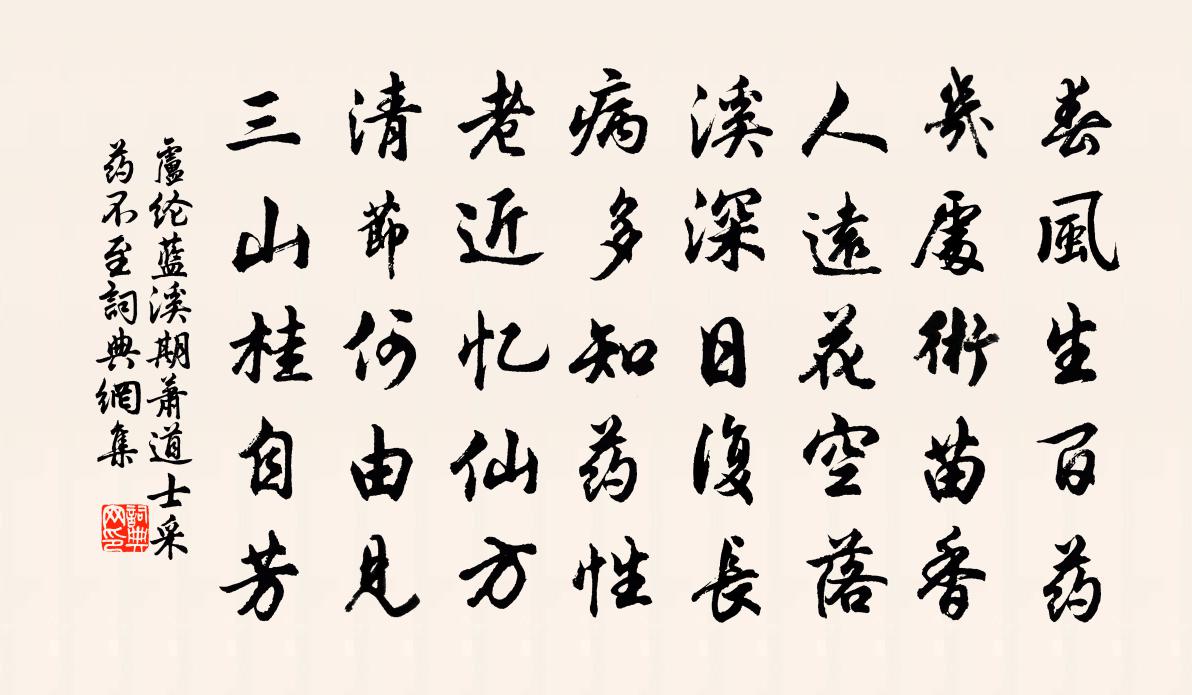 春風生百药
幾處術苗香
人遠花空落
溪深日復長
病多知药性
老近忆仙方
清節何由見
三山桂自芳
盧纶蓝溪期萧道士采
药不至詞典網集
詞典
网印